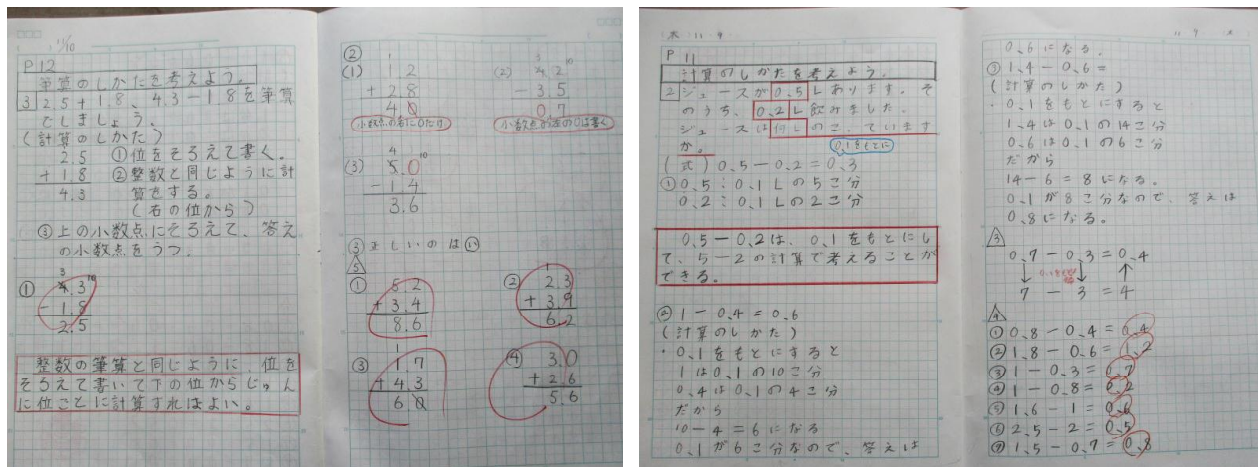 11/10
P12
筆算のしかたを考えよう。
3 2.5+1.8、4.3-1.8を筆算
でしましょう。
(計算のしかた)
2.5 ①位をそろえて書く。
+1.8 ②整数と同じように計
4.3 算をする。
(右の位から)
③上の小数点にそろえて、答え
の小数点をうつ。
3 10
① 4.3
-1.8
2.5
整数の筆算と同じように、位を
そろえて書いて下の位からじゅん
に位ごとに計算すればよい。
②
1
(1) 1.2
+2.8
4.0
小数点の右に0だけ
3 10
(2) 4.2
-3.5
0.7
4 10
(3) 5.0
-1.4
3.6
③ 正しいのは
5
① 5.2
+3.4
8.6
1
② 2.3
+3.9
6.2
1
③ 1.7
+4.3
6.0
④ 3.0
+2.6
5.6
木 11 9
P11
計算のしかたを考えよう。
2 ジュースが0.5Lあります。そ
のうち、0.2L飲みました。
ジュースは何Lのこっています
か。
0.1をもとに
(式) 0.5-0.2=0.3
① 0.5:0.1Lの5こ分
0.2:0.1Lの2こ分
0.5-0.2は、0.1をもとにし
て、5-2の計算で考えることが
できる。
② 1-0.4=0.6
(計算のしかた)
・0.1をもとにすると
1は0.1の10こ分
0.4は0.1の4こ分
だから
10-4=6になる
0.1が6こ分なので、答えは
11 9 木
0.6になる。
③ 1.4-0.6=
(計算のしかた)
・0.1をもとにすると
1.4は0.1の14こ分
0.6は0.1の6こ分
だから
14-6=8になる。
0.1が8こ分なので、答えは
0.8になる。
3
0.7-0.3=0.4
7-3=4
4
① 0.8-0.4=0.4
② 1.8-0.6=1.2
③ 1-0.3=0.7
④ 1-0.8=0.2
⑤ 1.6-1=0.6
⑥ 2.5-2=0.5
⑦ 1.5-0.7=0.8